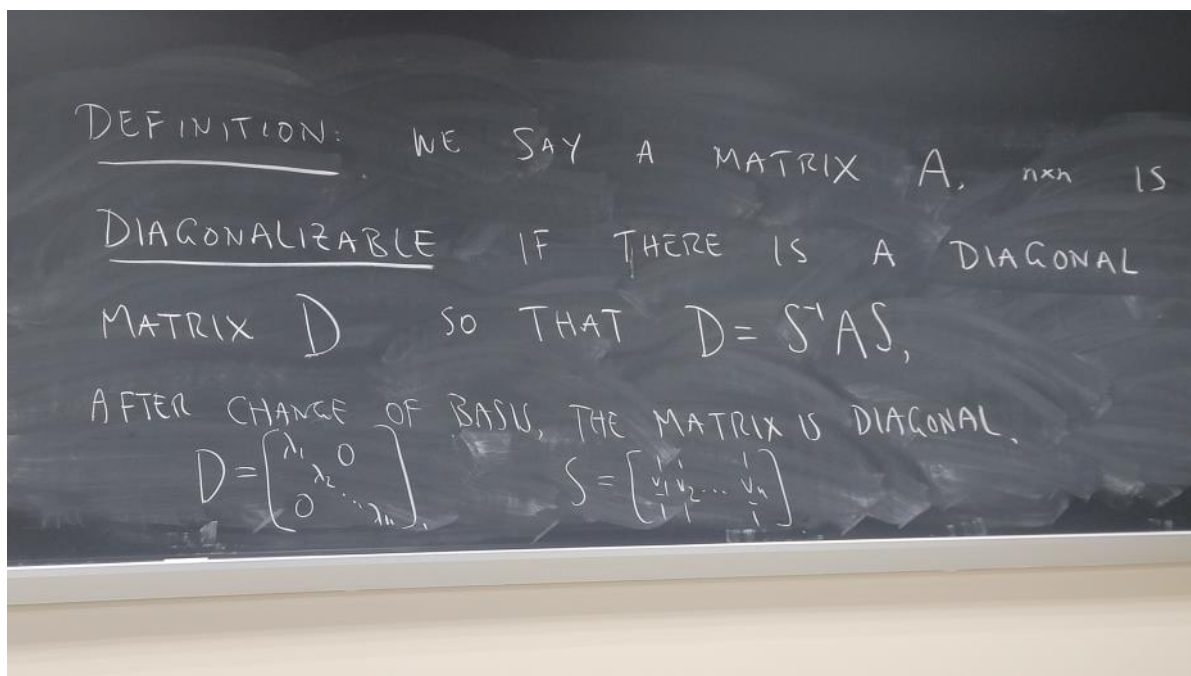 DEFINITION: WE SAY A MATRIX A, n×n IS
DIAGONALIZABLE IF THERE IS A DIAGONAL
MATRIX D SO THAT D = S⁻¹AS,
AFTER CHANGE OF BASIS, THE MATRIX IS DIAGONAL.
D = [λ₁ 0 λ₂ 0 ⋱ λₙ]. S = [v₁ v₂ ... vₙ]